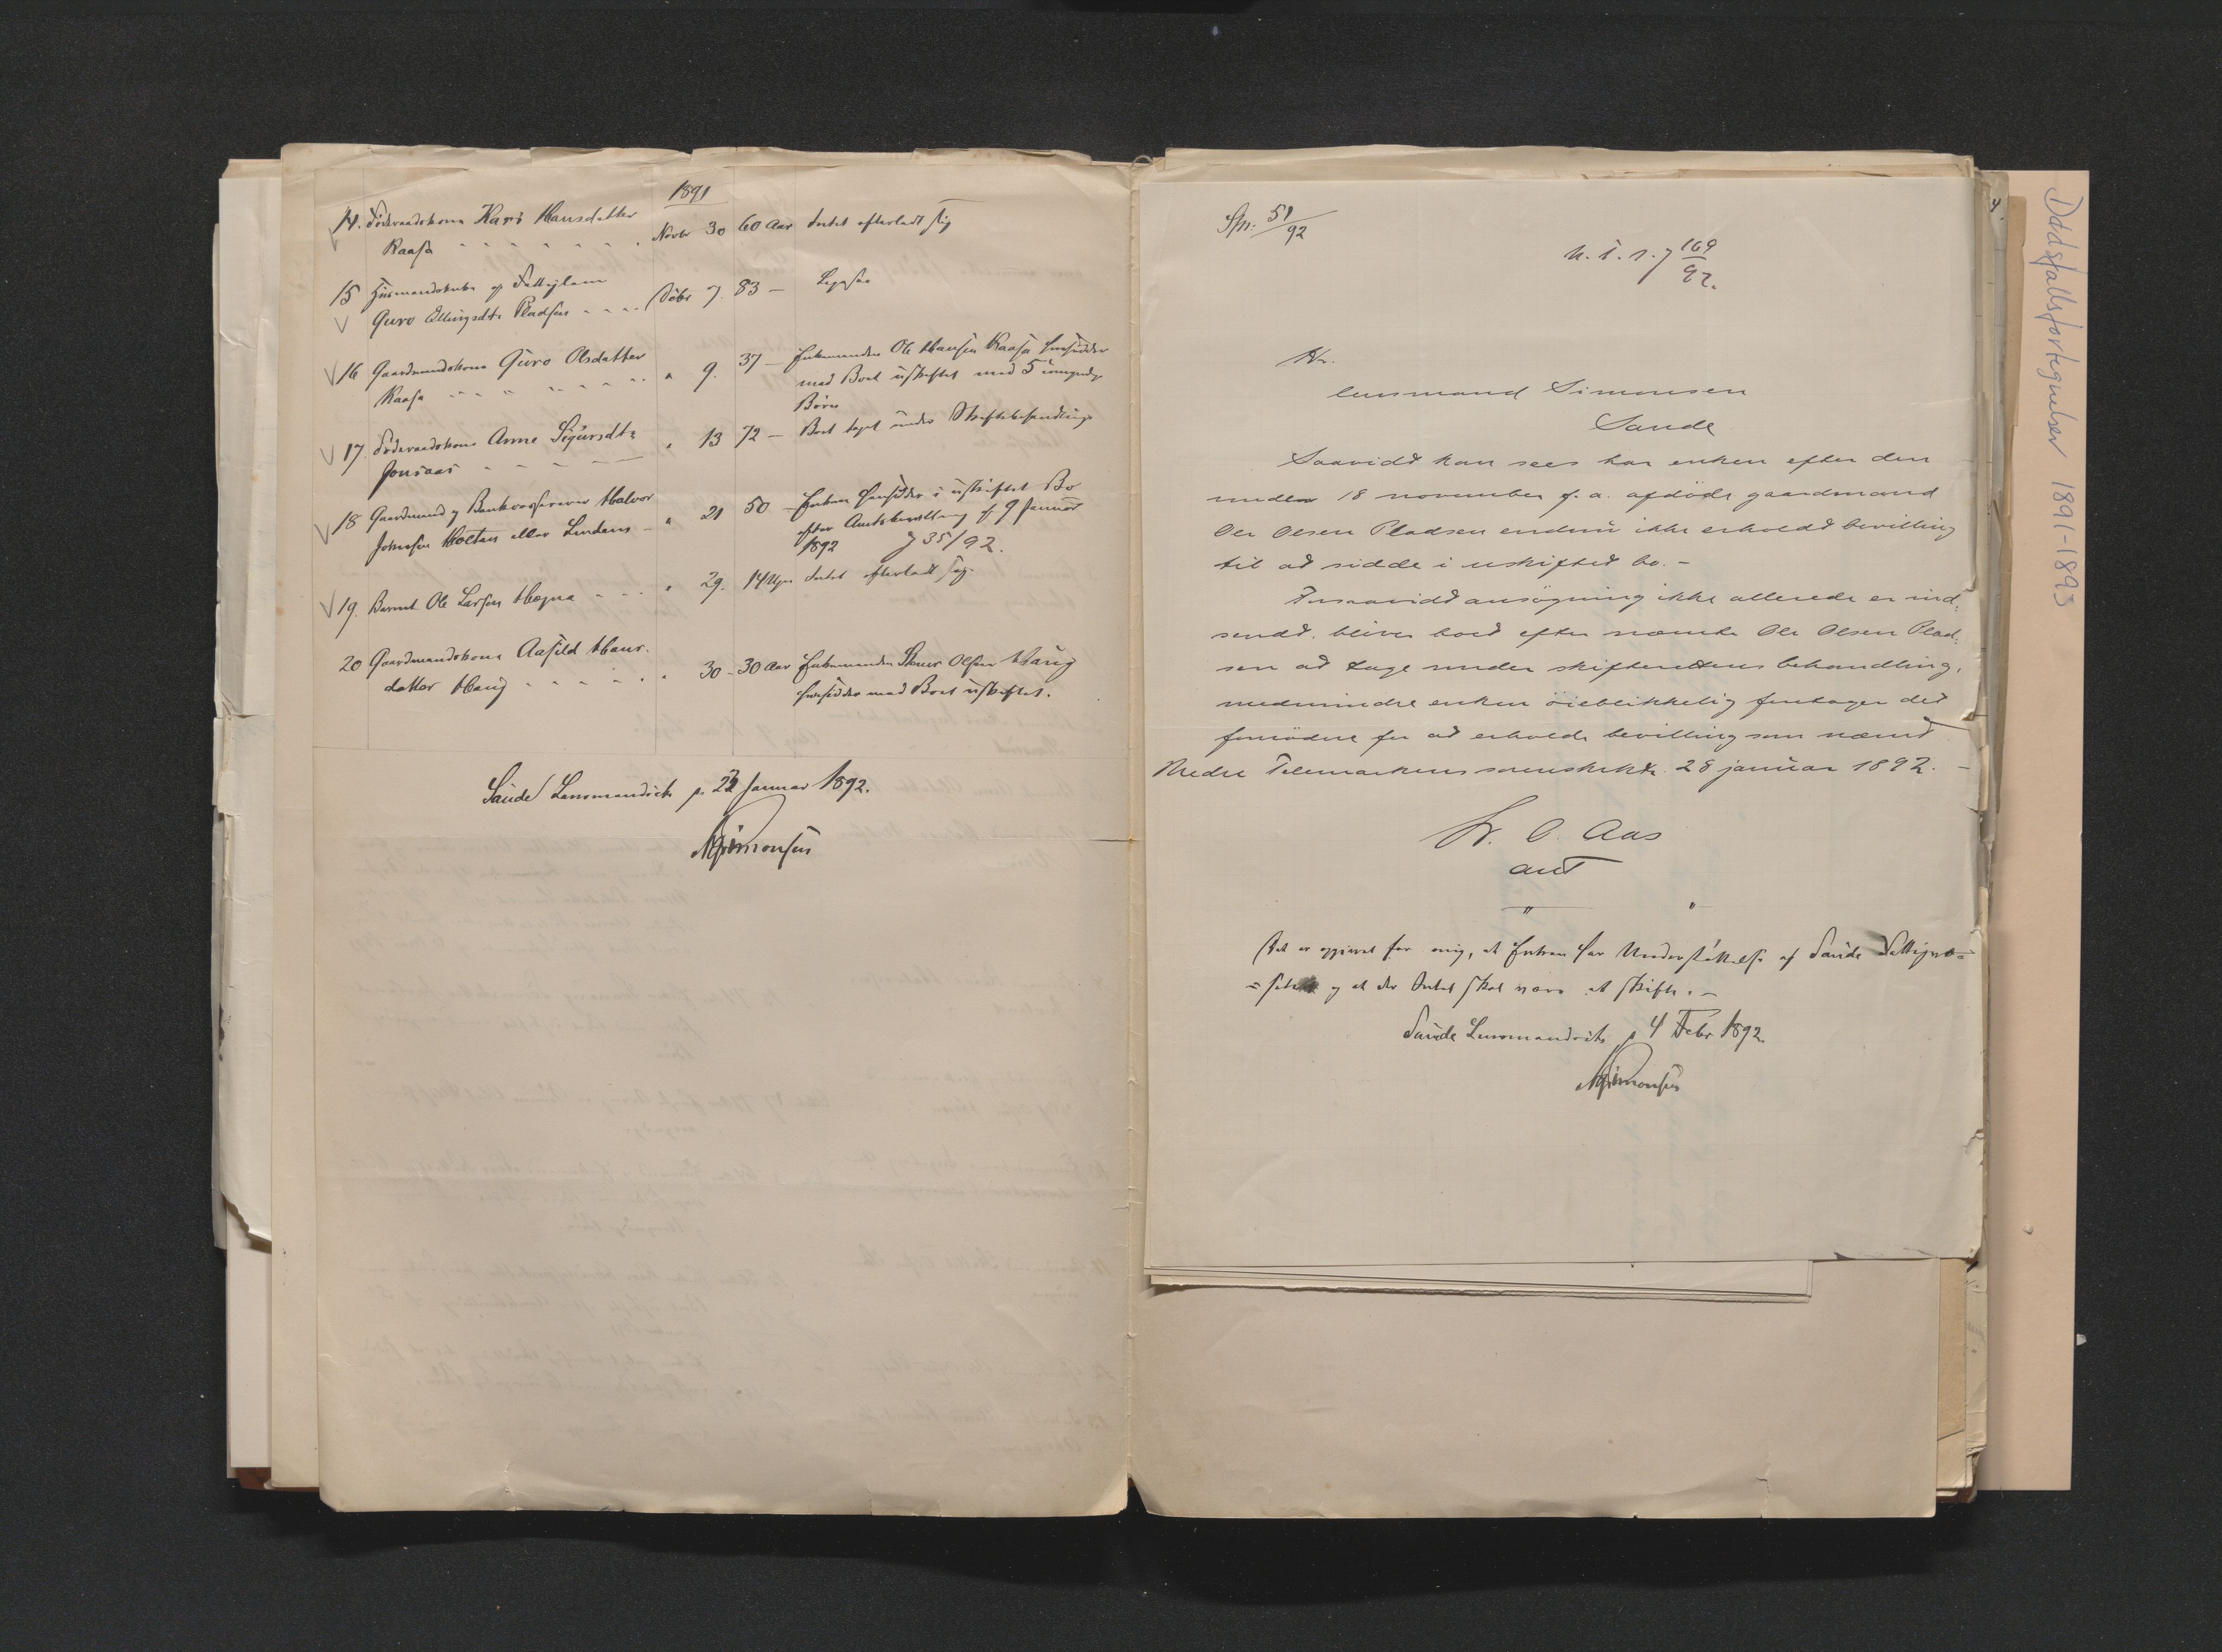 1891
14. Föderaadskone Kari Hansdatter
Raasa Novbr 30 60 Aar Intet efterladt sig
15 Husmandsenke og Fattiglem
Guro Ellingsdtr Pladsen Debr 7. 83 — Ligesaa
16 Gaardmandskone Guro Olsdatter
Raasa " 9. 37 — Enkemanden Ole Hansen Raasa hensidder
med Boet uskiftet med 5 umyndige
Börn
17. Föderaadskone Anne Sigursdtr
Jonsaas " 13 72 — Boet taget under Skiftebehandling
18 Gaardmand og Bankkasserer Halvor
Johnsen Holtan eller Lindans — " 21 50 — Enken hensidder i uskiftet Bo
efter Amtsbevilling af 9 Januar
1892 J 35/92.
19. Barnet Ole Larsen Hegna " 29. 14 Uger Intet efterladt sig.
20 Gaardmandskone Aasild Hans-
datter Haug " 30 - 30 Aar Enkemanden Stener Olsen Haug
hensidder med Boet uskiftet.
Saude Lensmandsbst. p. 22 Januar 1892.
NSimonsen
Spn: 51/92
N. T. s. J 169/92.
Hr.
lensmand Simonsen
Saude
Saavidt kan sees har enken efter den
under 18 november f. a. afdöde gaardmand
Ole Olsen Pladsen endnu ikke erholdt bevilling
til at sidde i uskiftet bo. –
Forsaavidt ansögning ikke allerede er ind-
sendt, bliver boet efter nævnte Ole Olsen Plad-
sen at tage under skifterettens behandling,
medmindre enken öieblikkelig foretager det
fornödne for at erholde bevilling som nævnt
Nedre Telemarkens sorenskrkt. 28 januar 1892. –
Fr. O. Aas
aut
" "
Det er opgivet for mig, at Enken har Understöttelse af Saude Fattigvæ-
sen og at der Intet skal være at skifte. –
Saude Lensmandsbst. p 4 Febr 1892.
NSimonsen
4.
Dødsfallsfortegnelser 1891-1893